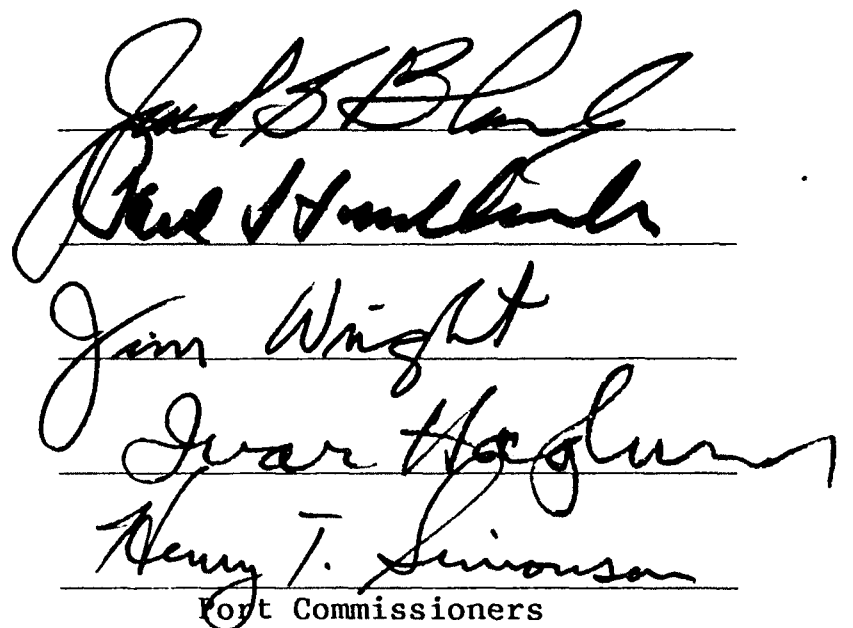 Jack S Block
Paul
Jim Wright
Ivar Haglund
Henry T. Simonson
Port Commissioners